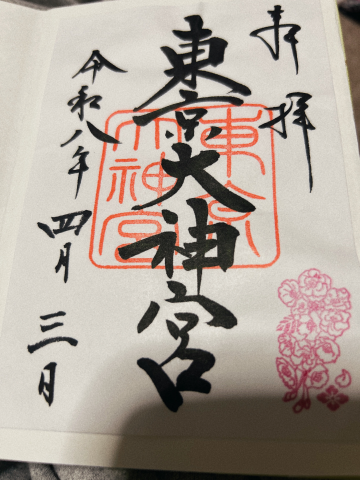 奉拝
東京大神宮
令和八年四月三日
東京
大神宮